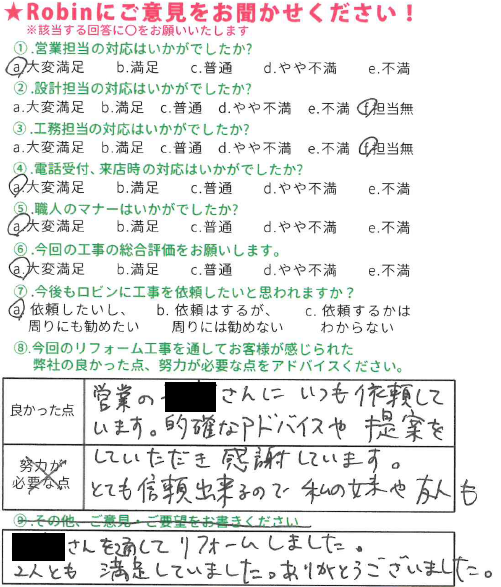 ★Robinにご意見をお聞かせください！
※該当する回答に〇をお願いいたします
①.営業担当の対応はいかがでしたか?
a.大変満足 b.満足 c.普通 d.やや不満 e.不満
②.設計担当の対応はいかがでしたか?
a.大変満足 b.満足 c.普通 d.やや不満 e.不満 f.担当無
③.工務担当の対応はいかがでしたか?
a.大変満足 b.満足 c.普通 d.やや不満 e.不満 f.担当無
④.電話受付、来店時の対応はいかがでしたか?
a.大変満足 b.満足 c.普通 d.やや不満 e.不満
⑤.職人のマナーはいかがでしたか?
a.大変満足 b.満足 c.普通 d.やや不満 e.不満
⑥.今回の工事の総合評価をお願いします。
a.大変満足 b.満足 c.普通 d.やや不満 e.不満
⑦.今後もロビンに工事を依頼したいと思われますか？
a. 依頼したいし、 b. 依頼はするが、 c. 依頼するかは
周りにも勧めたい 周りには勧めない わからない
⑧.今回のリフォーム工事を通してお客様が感じられた
弊社の良かった点、努力が必要な点をアドバイスください。
良かった点
営業の さんに いつも依頼して
います。的確なアドバイスや 提案を
努力が
必要な点
していただき 感謝しています。
とても信頼出来るので 私の妹や 友人も
⑨.その他、ご意見・ご要望をお書きください
さんを通して リフォームしました。
2人とも 満足していました。ありがとうございました。